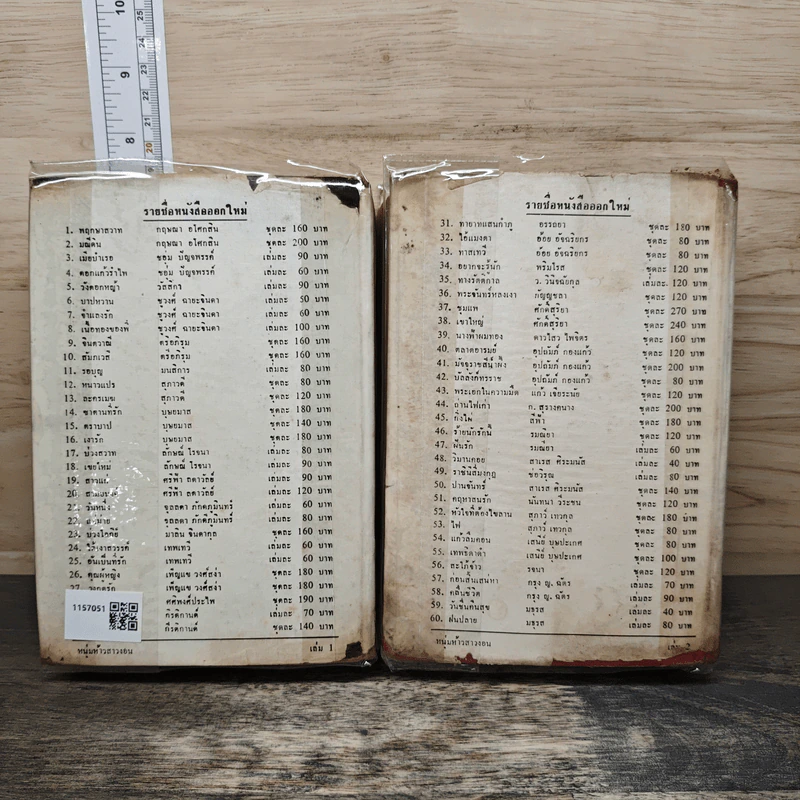 10
25
24
9
23
22
21
8
20
รายชื่อหนังสือออกใหม่
1. พฤกษาสวาท กฤษณา อโศกสิน ชุดละ 160 บาท
2. มณีดิน กฤษณา อโศกสิน ชุดละ 200 บาท
3. เมียบำเรอ ชอุ่ม ปัญจพรรค์ เล่มละ 90 บาท
4. ดอกแก้วร่ำไพ ชอุ่ม ปัญจพรรค์ เล่มละ 60 บาท
5. วังดอกหญ้า วลัสิกา เล่มละ 90 บาท
6. บาปหวาน ชูวงศ์ ฉายะจินดา เล่มละ 50 บาท
7. จำแลงรัก ชูวงศ์ ฉายะจินดา เล่มละ 60 บาท
8. เนื้อทองของพี่ ชูวงศ์ ฉายะจินดา เล่มละ 100 บาท
9. จินตวาตี ตรีอภิรุม ชุดละ 160 บาท
10. สัมภเวสี ตรีอภิรุม ชุดละ 160 บาท
11. รอบุญ มนสิการ เล่มละ 80 บาท
12. หนาวแปร สุภาวดี ชุดละ 80 บาท
13. ละครเมฆ สุภาวดี ชุดละ 120 บาท
14. ซาตานที่รัก บุษยมาส ชุดละ 180 บาท
15. ตราบาป บุษยมาส ชุดละ 140 บาท
16. เงารัก บุษยมาส ชุดละ 180 บาท
17. บ่วงสวาท ลักษณ์ โรจนา เล่มละ 80 บาท
18. เขยใหม่ ลักษณ์ โรจนา เล่มละ 90 บาท
19. ศรีฟ้า ลดาวัลย์ เล่มละ 90 บาท
20. ศรีฟ้า ลดาวัลย์ เล่มละ 120 บาท
21. วันหนึ่ง จุลลดา ภักดีภูมินทร์ เล่มละ 60 บาท
22. จุลลดา ภักดีภูมินทร์ เล่มละ 80 บาท
23. มาลิน จินดากุล ชุดละ 160 บาท
24. วิลาสวรรค์ เทพเทวี เล่มละ 60 บาท
25. อันเป็นที่รัก เทพเทวี เล่มละ 60 บาท
26. คุณผู้หญิง เพ็ญแข วงศ์สง่า ชุดละ 180 บาท
27. เพ็ญแข วงศ์สง่า ชุดละ 180 บาท
ศศิพงศ์ประไพ ชุดละ 190 บาท
กีรติกานต์ เล่มละ 70 บาท
กีรติกานต์ ชุดละ 140 บาท
1157051
หนุ่มห้าวสาวงอน เล่ม 1
รายชื่อหนังสือออกใหม่
31. ทายาทแสนกำภู อรรถยา ชุดละ 180 บาท
32. ไอ้แมงดา อ้อย อัจฉริยกร ชุดละ 80 บาท
33. ทาสเทวี อ้อย อัจฉริยกร ชุดละ 80 บาท
34. อยากจะรู้นัก พริมโรส ชุดละ 120 บาท
35. ทางรัตติกาล ว. วินิจฉัยกุล เล่มละ 120 บาท
36. พระจันทร์หลงเงา กัญญ์ชลา ชุดละ 120 บาท
37. ชุมแพ ศักดิ์สุริยา ชุดละ 270 บาท
38. เขาใหญ่ ศักดิ์สุริยา ชุดละ 240 บาท
39. นางฟ้าผมทอง ดาวไสว ไพจิตร ชุดละ 160 บาท
40. ตลาดอารมย์ อุปถัมภ์ กองแก้ว ชุดละ 120 บาท
41. มัจจุราชสีน้ำผึ้ง อุปถัมภ์ กองแก้ว ชุดละ 200 บาท
42. บัลลังก์ทรราช อุปถัมภ์ กองแก้ว ชุดละ 80 บาท
43. พระเอกในความมืด แก้ว เจียระนัย ชุดละ 120 บาท
44. ถ่านไฟเก่า ก. สุรางคนางค์ ชุดละ 200 บาท
45. ยิ่งไฟ สีฟ้า ชุดละ 180 บาท
46. ร้ายนักรักนี้ รมณียา ชุดละ 120 บาท
47. ฝืนรัก รมณียา เล่มละ 60 บาท
48. วิมานคอย สาเรศ ศิระมนัส เล่มละ 40 บาท
49. ราชินีสี่มงกุฎ ช่อวรุณ เล่มละ 80 บาท
50. ปานจันทร์ สาเรศ ศิระมนัส ชุดละ 140 บาท
51. คฤหาสนรัก นันทนา วีระชน ชุดละ 120 บาท
52. หัวใจที่ต้องไขลาน สุภาว์ เทวกุล ชุดละ 180 บาท
53. ไฟ สุภาว์ เทวกุล เล่มละ 80 บาท
54. แก้วลืมคอน เสนีย์ บุษปะเกศ เล่มละ 80 บาท
55. เทพธิดาดำ เสนีย์ บุษปะเกศ ชุดละ 100 บาท
56. สะใภ้จ้าว รจนา ชุดละ 120 บาท
57. ก่อนสิ้นเสน่หา กรุง ญ. ฉัตร เล่มละ 70 บาท
58. คลื่นชีวิต กรุง ญ. ฉัตร เล่มละ 90 บาท
59. วันชื่นคืนสุข มธุรส เล่มละ 40 บาท
60. ฝนปลาย มธุรส เล่มละ 80 บาท
เล่ม 2